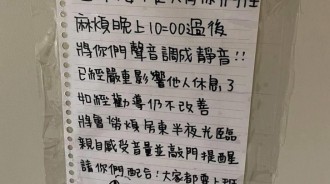 麻煩晚上10=00過後
將你們聲音調成靜音!!
已經嚴重影響他人休息,3
如經勸導仍不改善
將會勞煩房東半夜光臨
親自感受音量並敲門提醒
請你們配合!大家都要上班